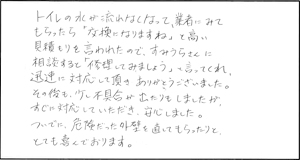 トイレの水が流れなくなって、業者にみて
もらったら「交換になりますね」と高い
見積もりを言われたので、すみうらさんに
相談すると「修理してみましょう」と言ってくれ、
迅速に対応して頂きありがとうございました。
その後も、少し不具合が出たりもしましたが、
すぐに対応していただき、安心しました。
ついでに、危険だった外壁を直してもらったりと、
とても喜んでおります。